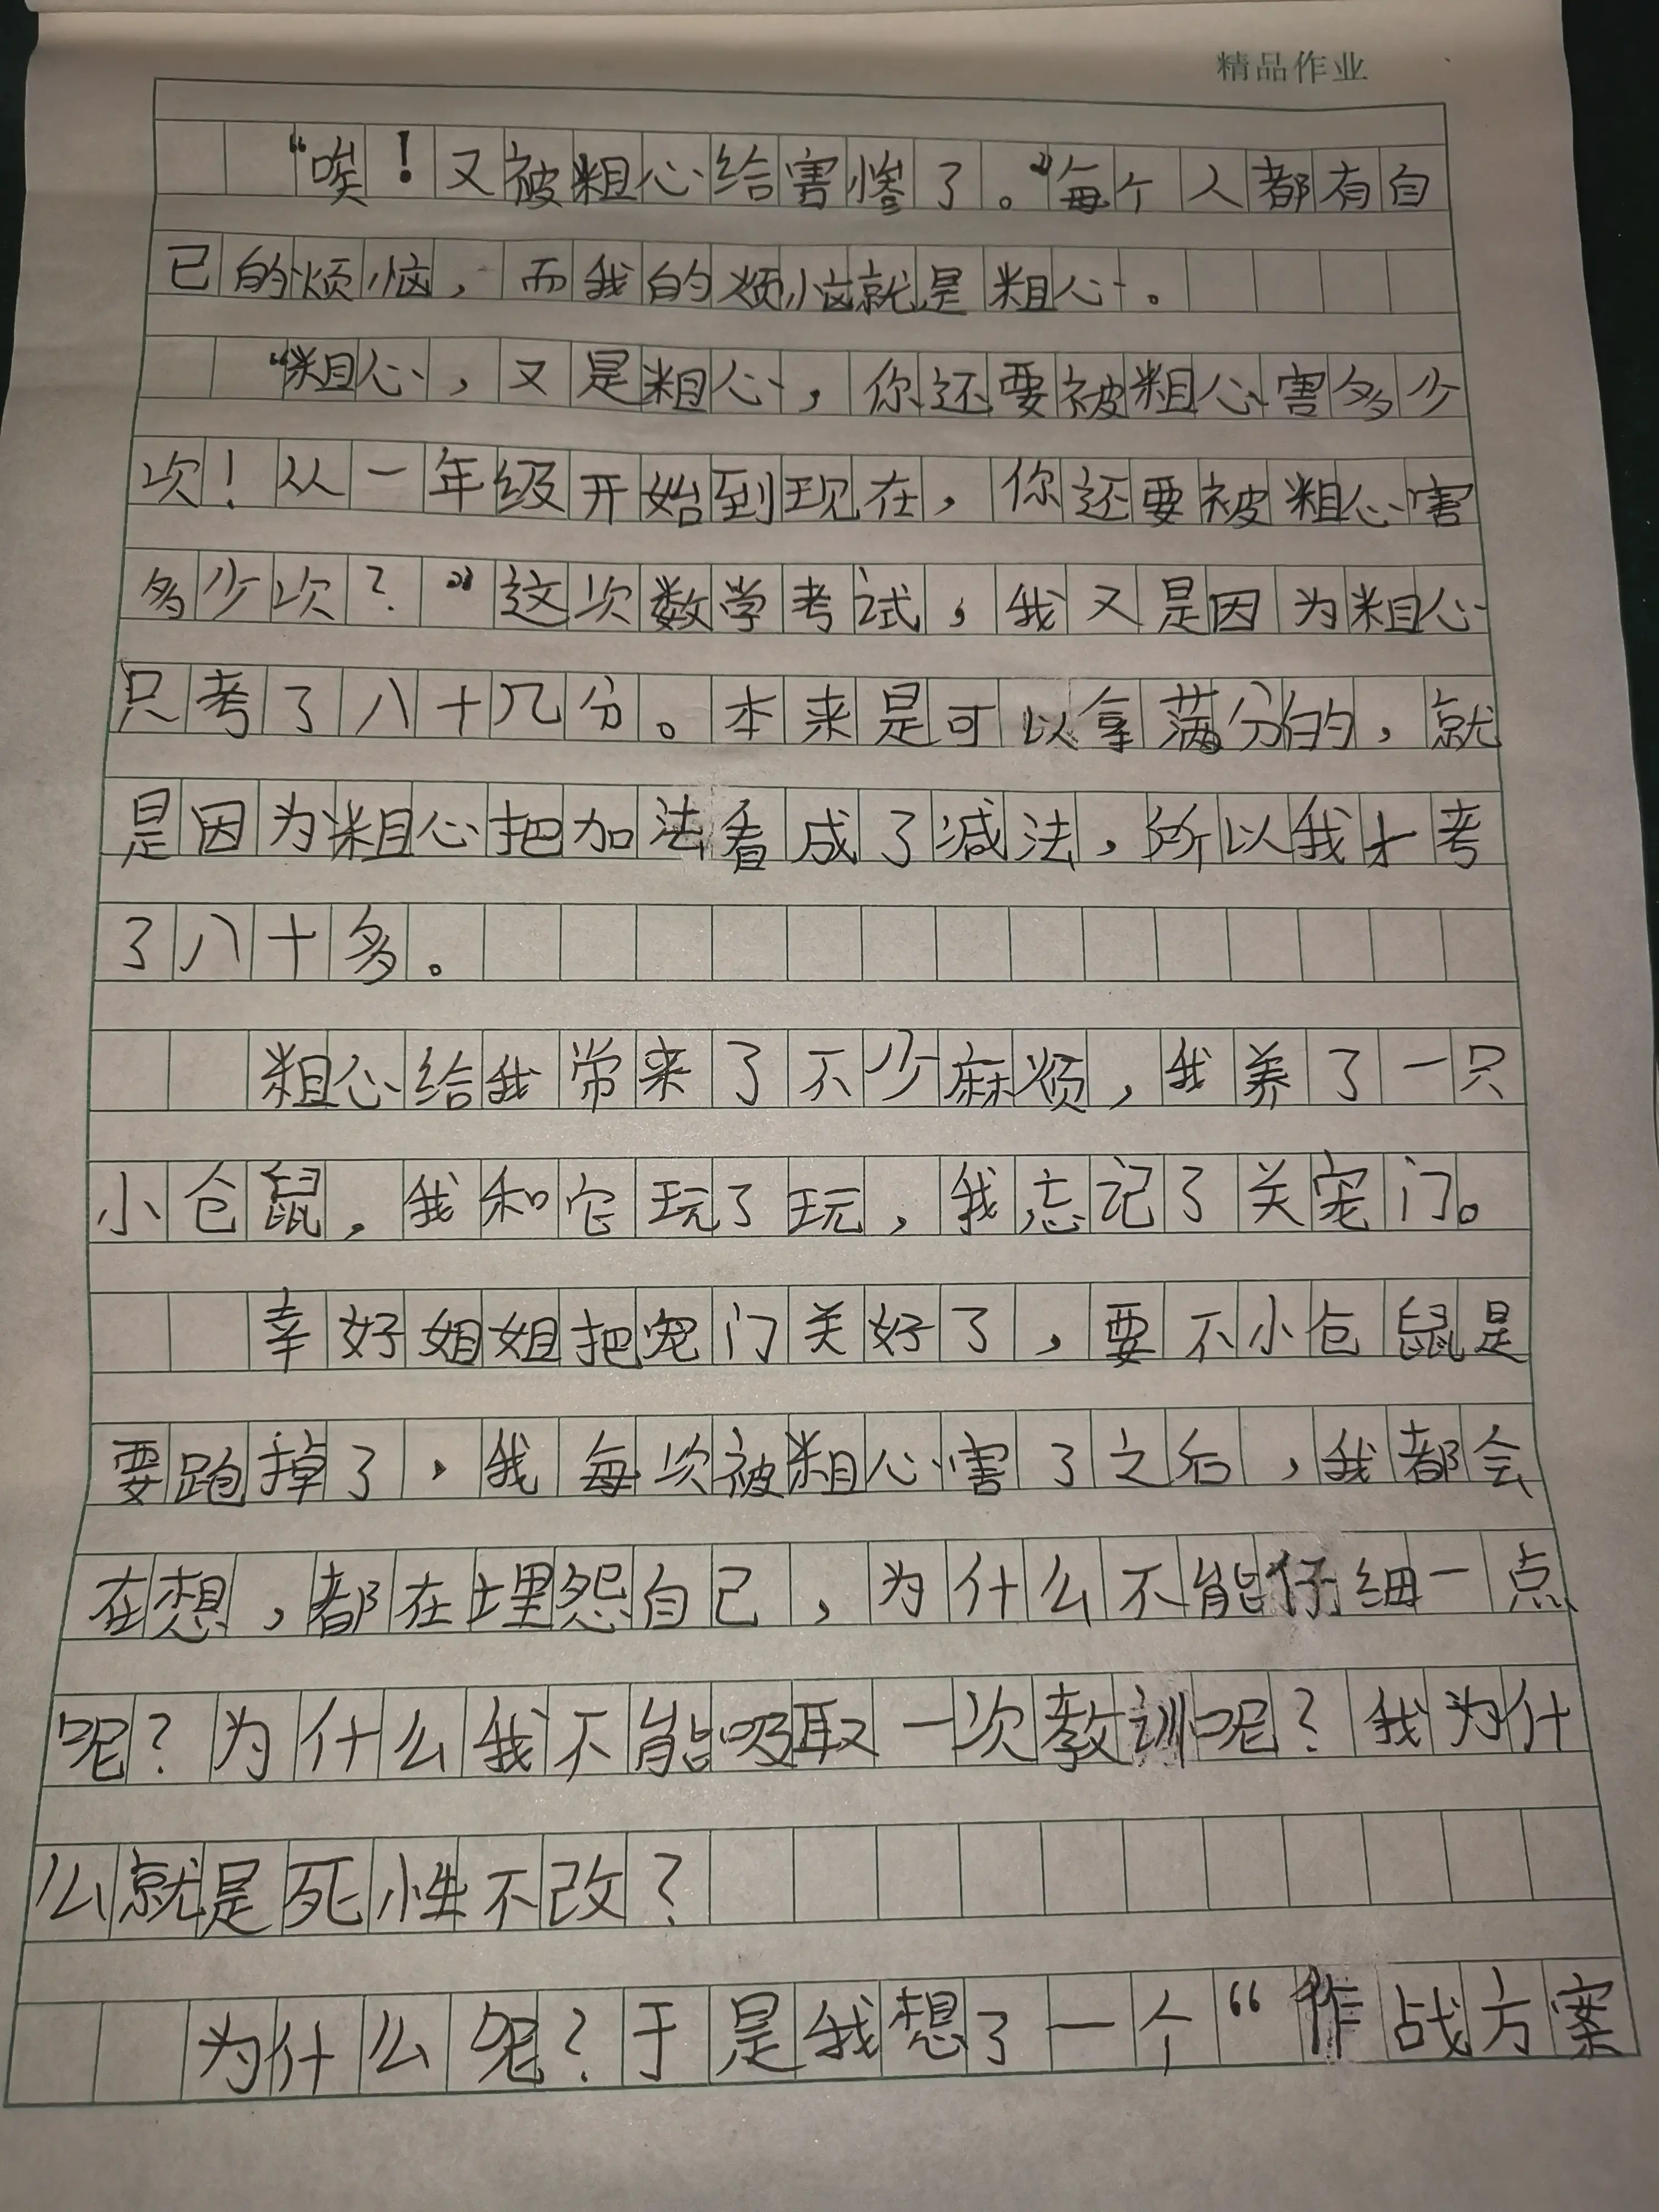 精品作业
“唉！又被粗心给害惨了。”每个人都有自
己的烦恼，而我的烦恼就是粗心。
“粗心，又是粗心，你还要被粗心害多少
次！从一年级开始到现在，你还要被粗心害
多少次？”这次数学考试，我又是因为粗心
只考了八十几分。本来是可以拿满分的，就
是因为粗心把加法看成了减法，所以我才考
了八十多。
粗心给我常来了不少麻烦，我养了一只
小仓鼠，我和它玩了玩，我忘记了关宠门。
幸好姐姐把宠门关好了，要不小仓鼠是
要跑掉了，我每次被粗心害了之后，我都会
在想，都在埋怨自己，为什么不能仔细一点
呢？为什么我不能吸取一次教训呢？我为什
么就是死性不改？
为什么呢？于是我想了一个“作战方案